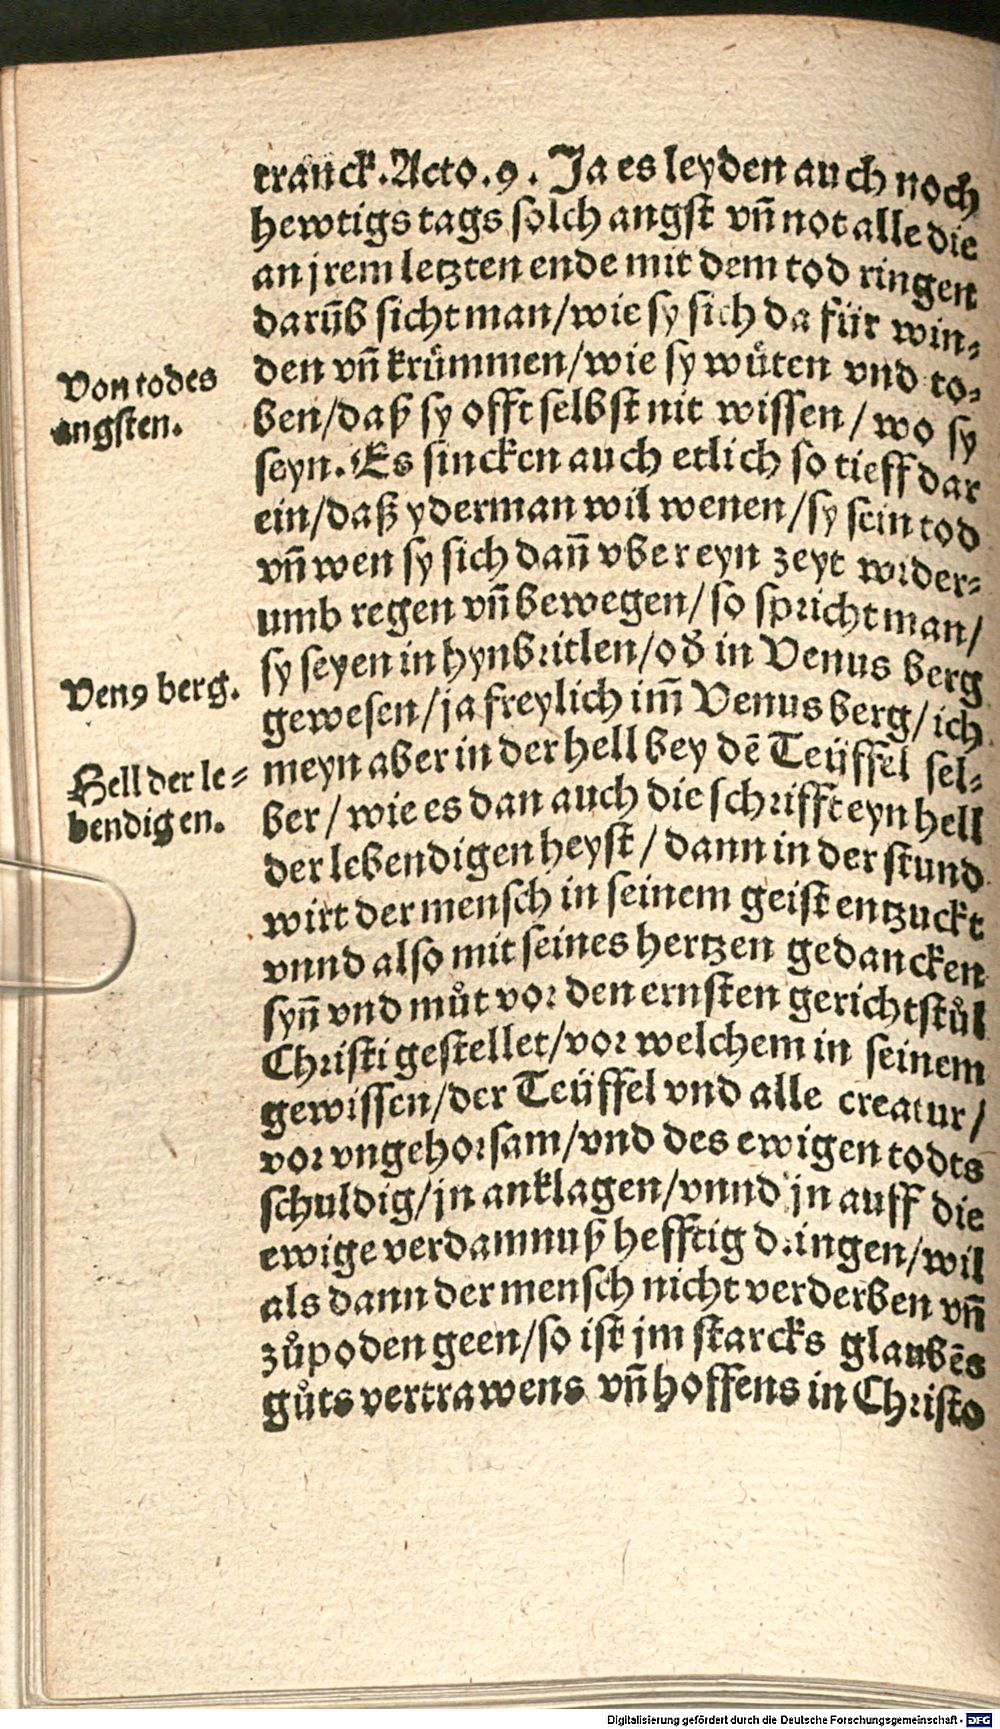 tranck. Acto. 9. Ja es leyden auch noch
hewtigs tags solch angst vñ not alle die
an jrem letzten ende mit dem tod ringen
darüb sicht man/wie sy sich da für win⸗
Von todes
angsten.
den vñ krümmen/wie sy wüten vnd to⸗
ben/daß sy offt selbst nit wissen/wo sy
seyn. Es sincken auch etlich so tieff dar
ein/daß yderman wil wenen/sy sein tod
vñ wen sy sich dañ vber eyn zeyt wider⸗
umb regen vñ bewegen/so spricht man/
Ven9 berg.
sy seyen in hynbritlen/oď in Venus berg
gewesen/ja freylich im̃ Venus berg/ich
Hell der le⸗
bendigen.
meyn aber in der hell bey dē Teüffel sel⸗
ber/wie es dan auch die schrifft eyn hell
der lebendigen heyst/dann in der stund
wirt der mensch in seinem geist entzuckt
vnnd also mit seines hertzen gedancken
syñ vnd můt vor den ernsten gerichtstůl
Christi gestellet/vor welchem in seinem
gewissen/der Teüffel vnd alle creatur/
vor vngehorsam/vnd des ewigen todts
schuldig/jn anklagen/vnnd jn auff die
ewige verdamnuß hefftig dringen/wil
als dann der mensch nicht verderben vñ
zůpoden geen/so ist jm starcks glaubēs
gůts vertrawens vñ hoffens in Christo
Digitalisierung gefördert durch die Deutsche Forschungsgemeinschaft - DFG